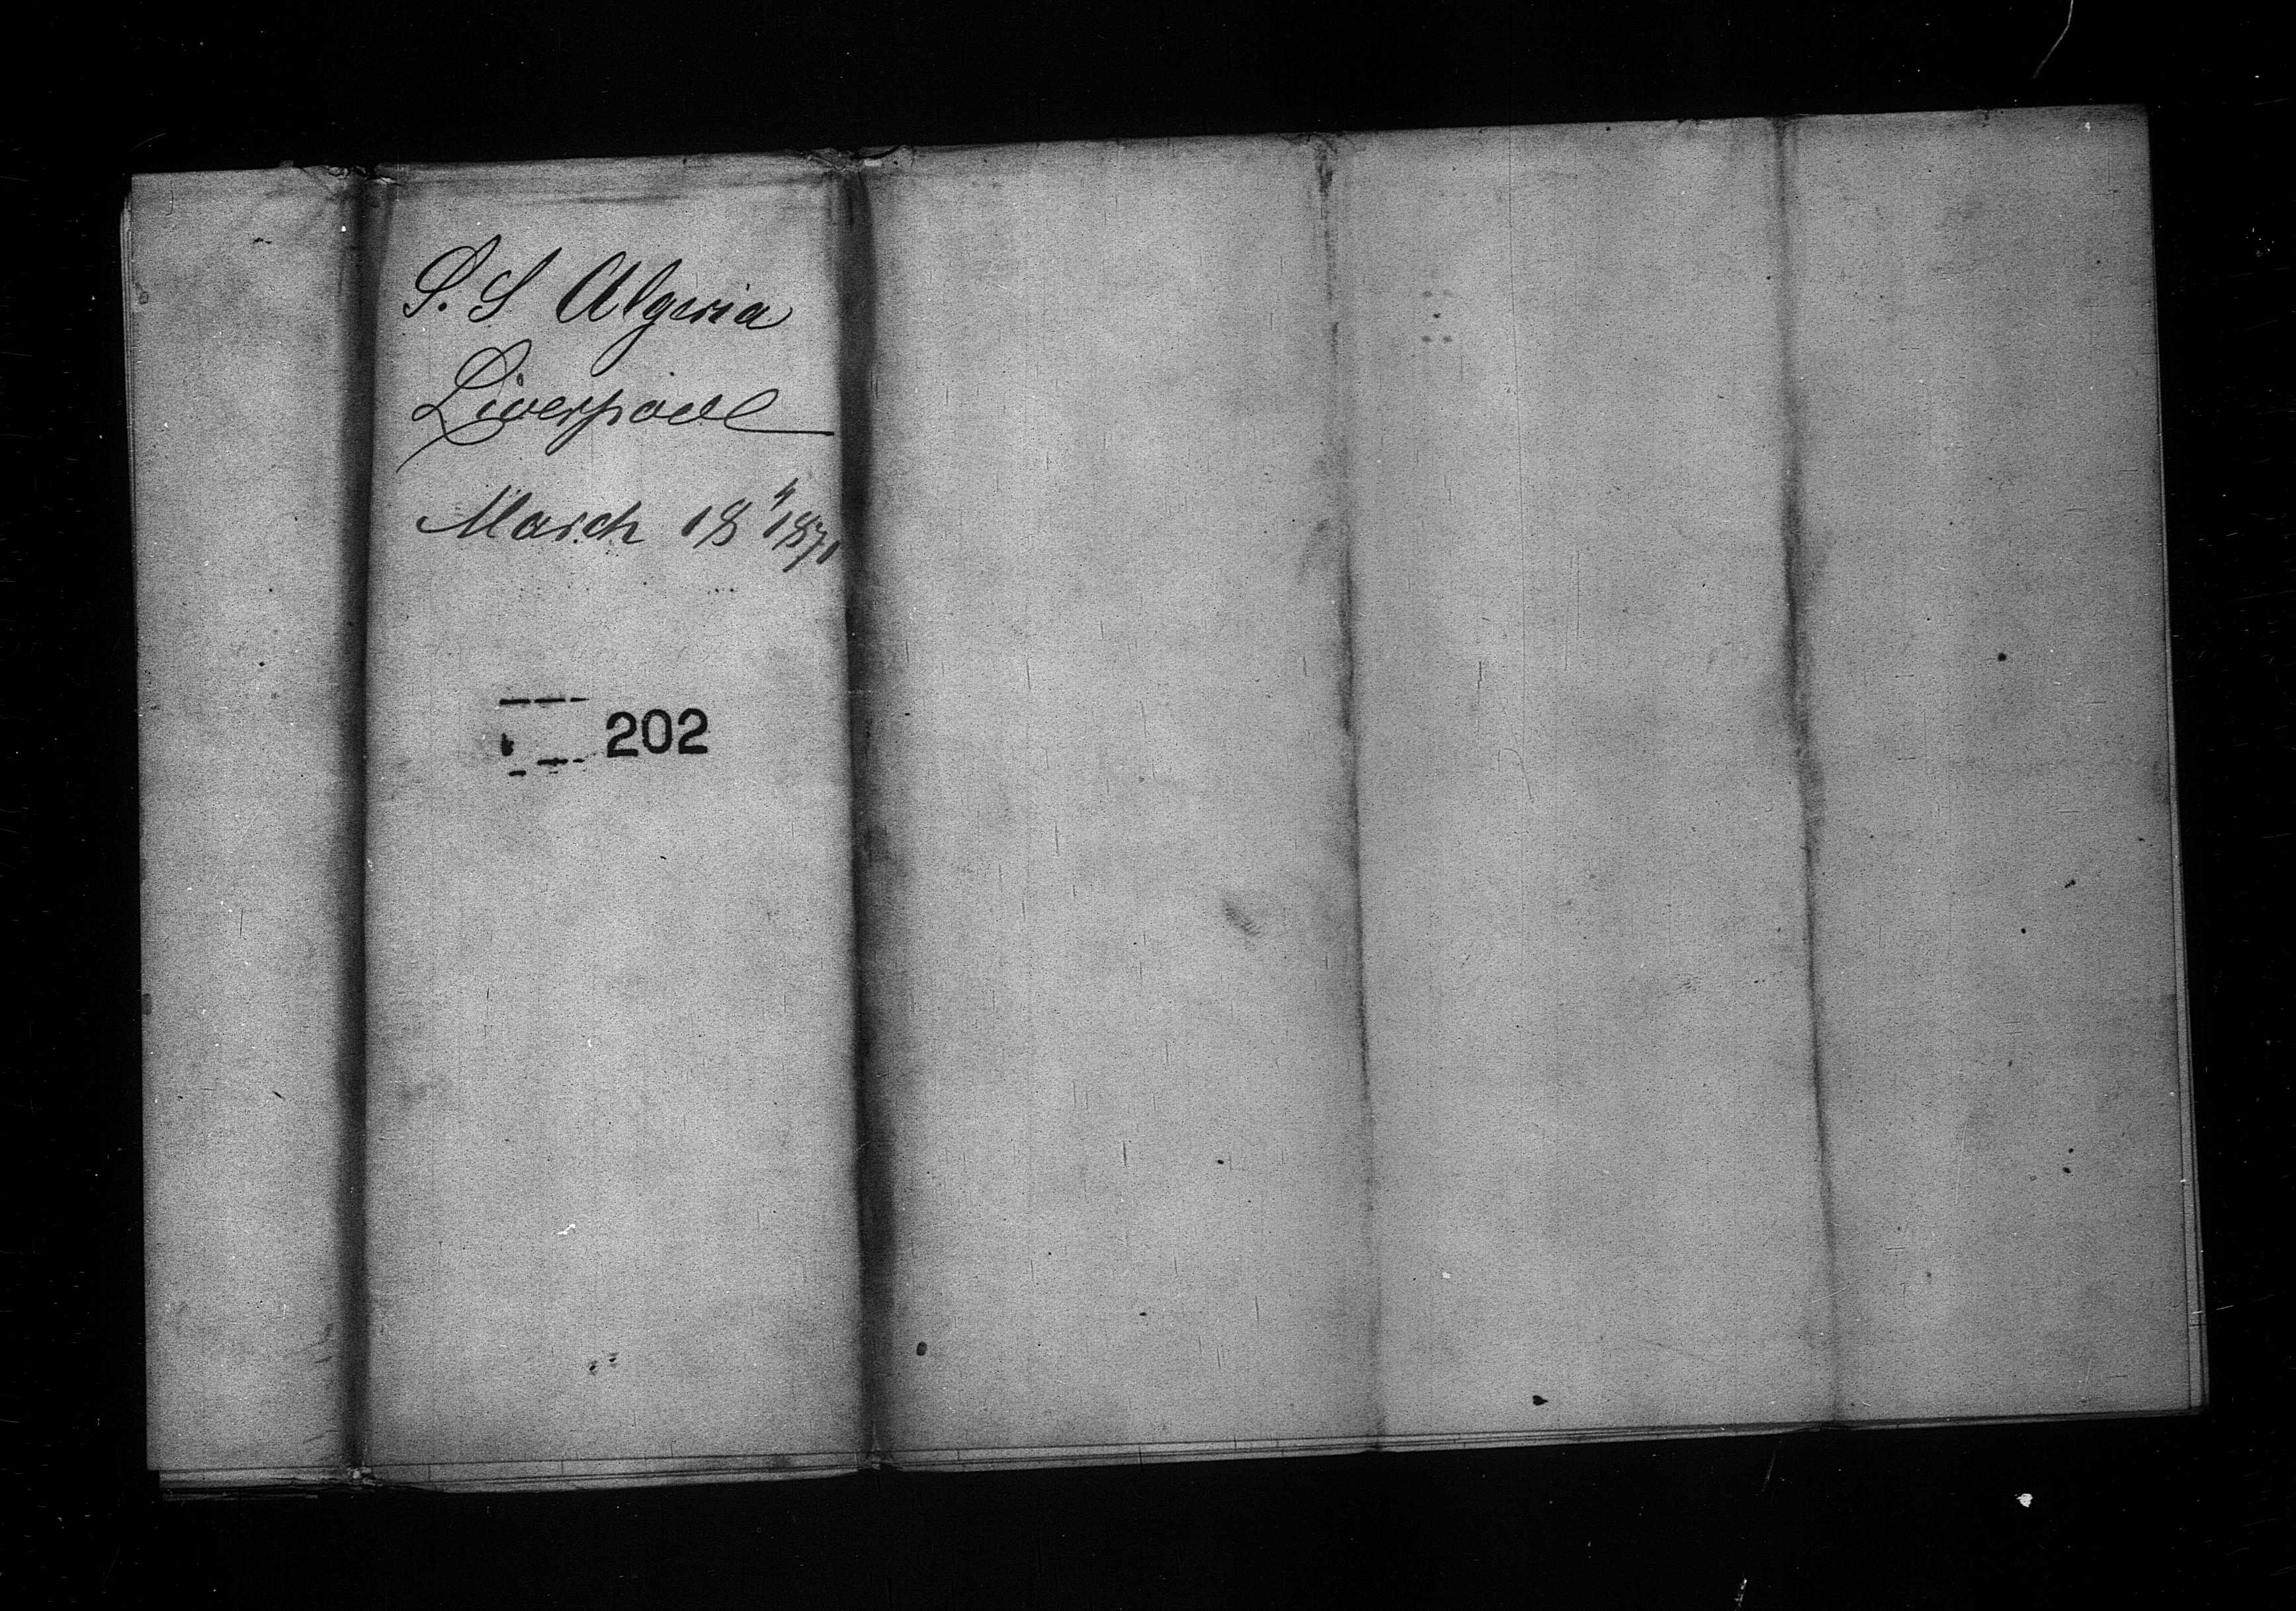 S. S Algeria
Liverpool
March 18" 1871
202